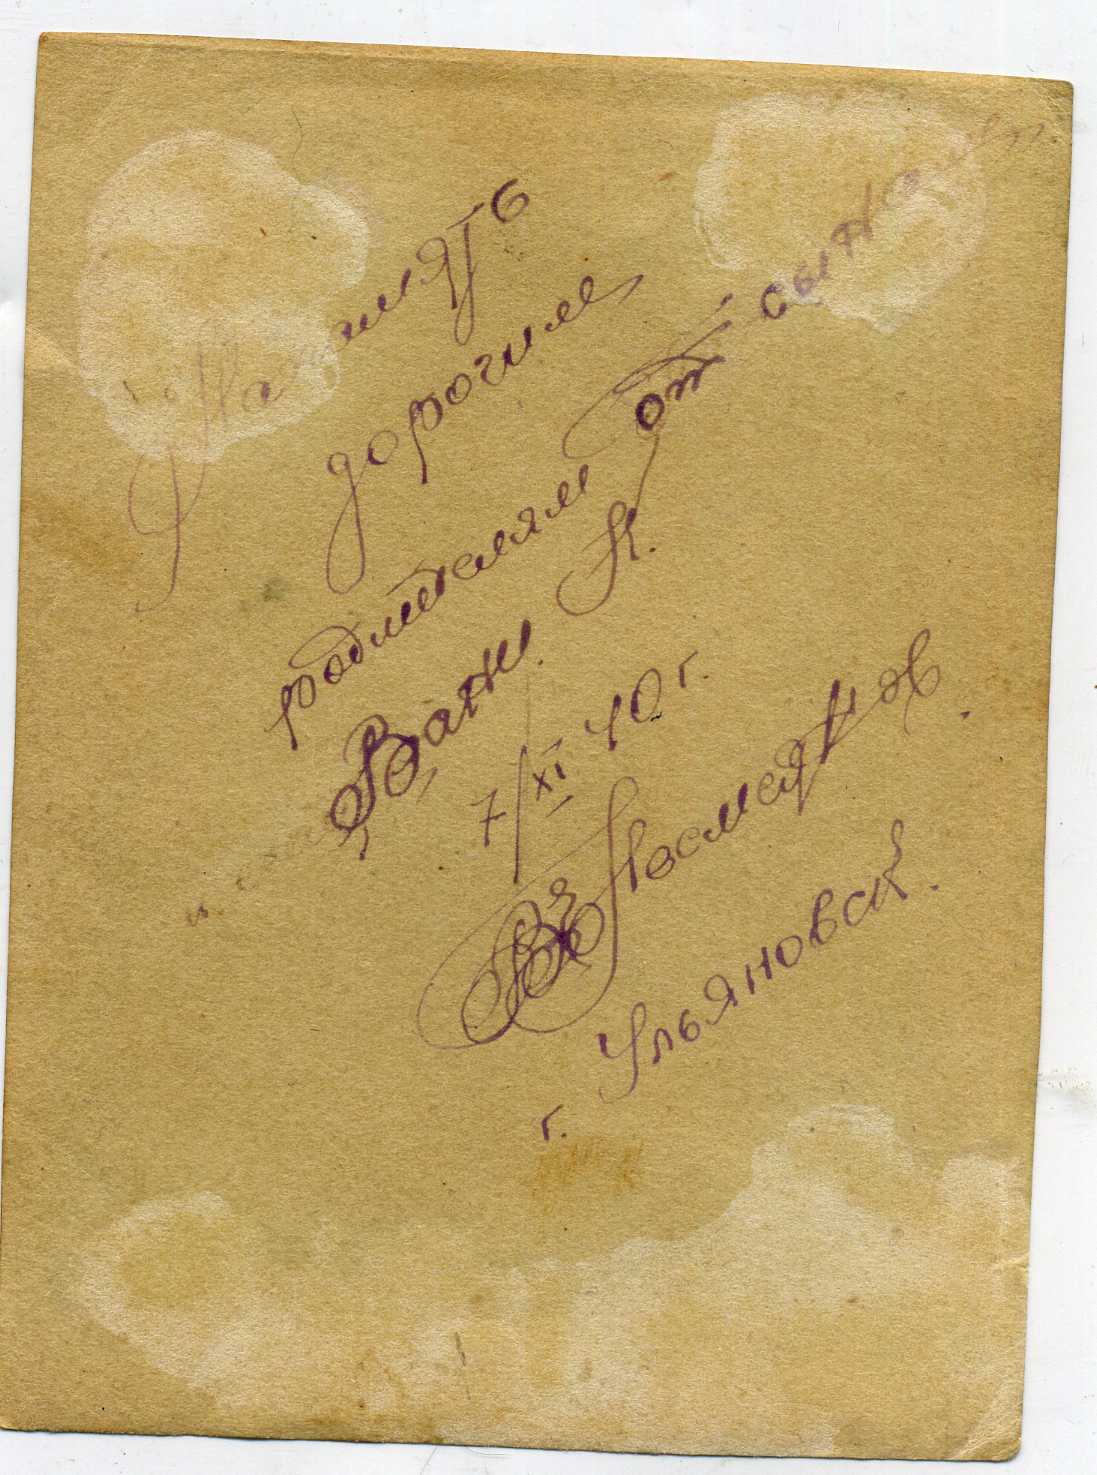 На память
дорогим
родителям от сына
Вани К.
7/XI 40 г.
г. Ульяновск.